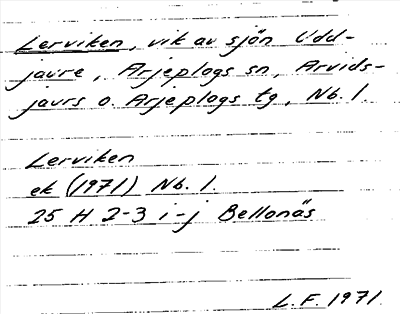 Lerviken, vik av sjön Udd-
jaure, Arjeplogs sn, Arvids-
jaurs o. Arjeplogs tg, Nb. l.
Lerviken
ek (1971) Nb. l.
25 H 2-3 i-j Bellonäs
L.F. 1971.